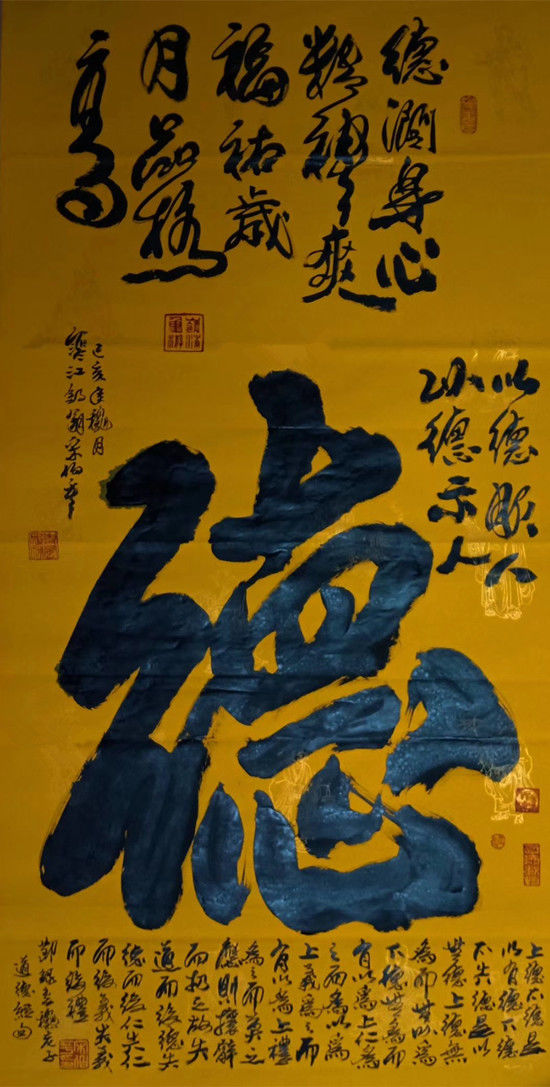 德潤身心
精神爽
福祐歲
月品格
高
以德服人
以德示人
己亥年桃月
德
上德不德是
以有德下德
不失德是以
無德上德無
為而無以為
下德無為而
有以為上仁為
之而無以為
上義為之而
有以為上禮
為之而莫之
應則攘臂
而扔之故失
道而後德失
德而後仁失仁
而後義失義
而後禮
老子
道德經句